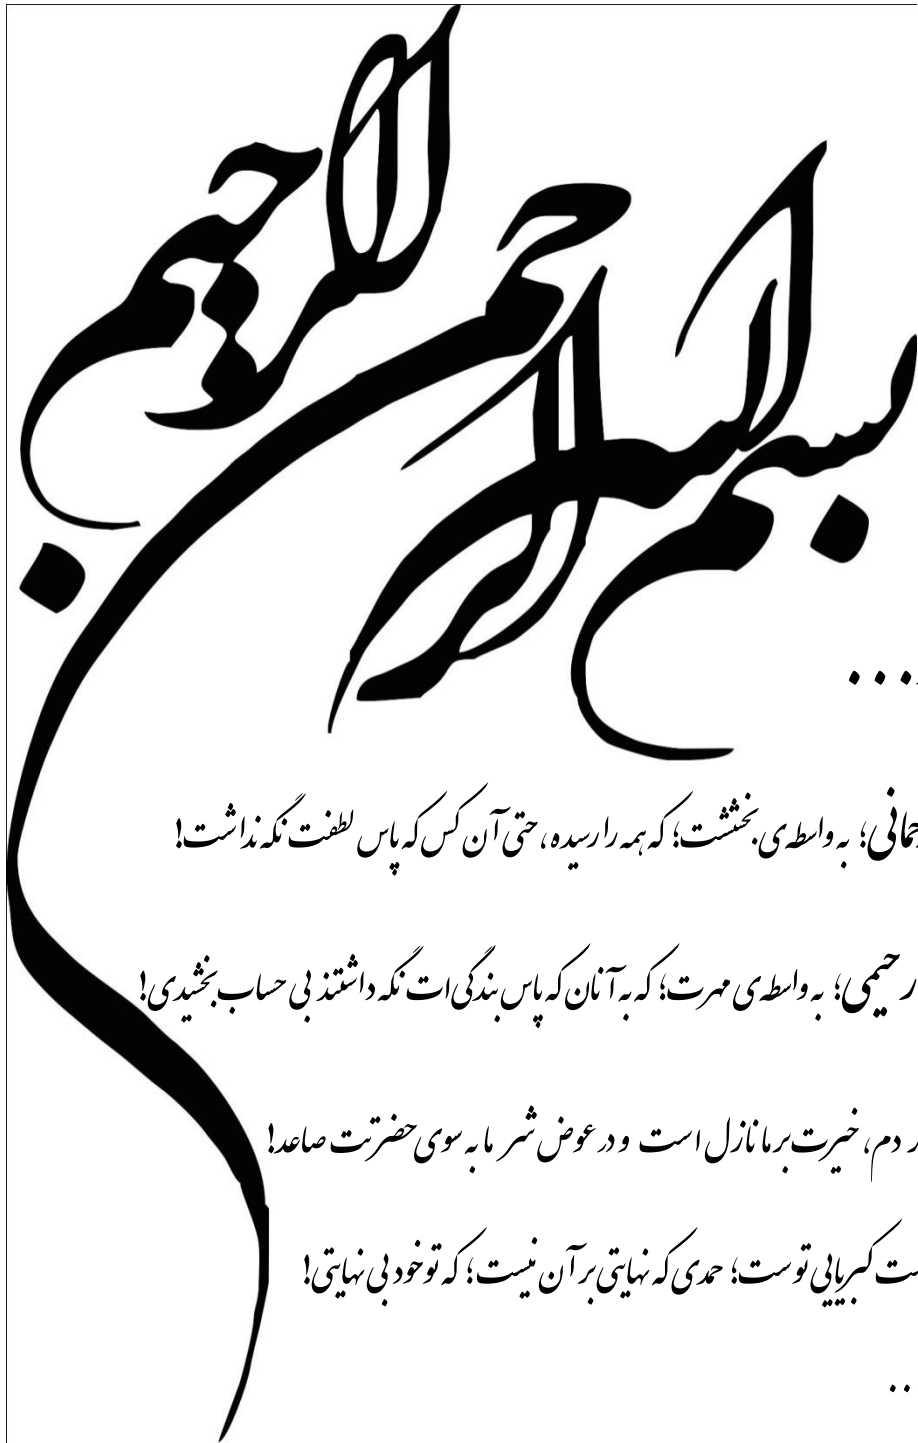 بسم الله الرحمن الرحیم
...
رحمانی؛ به واسطه‌ی بخششت؛ که همه را رسیده، حتی آن کس که پاس لطفت نگه نداشت!
رحیمی؛ به واسطه‌ی مهرت؛ که به آنان که پاس بندگی‌ات نگه داشتند بی حساب بخشیدی!
دم، خیرت بر ما نازل است و در عوض شر ما به سوی حضرتت صاعد!
کبریایی توست؛ حمدی که نهایتی بر آن نیست؛ که تو خود بی نهایتی!
..